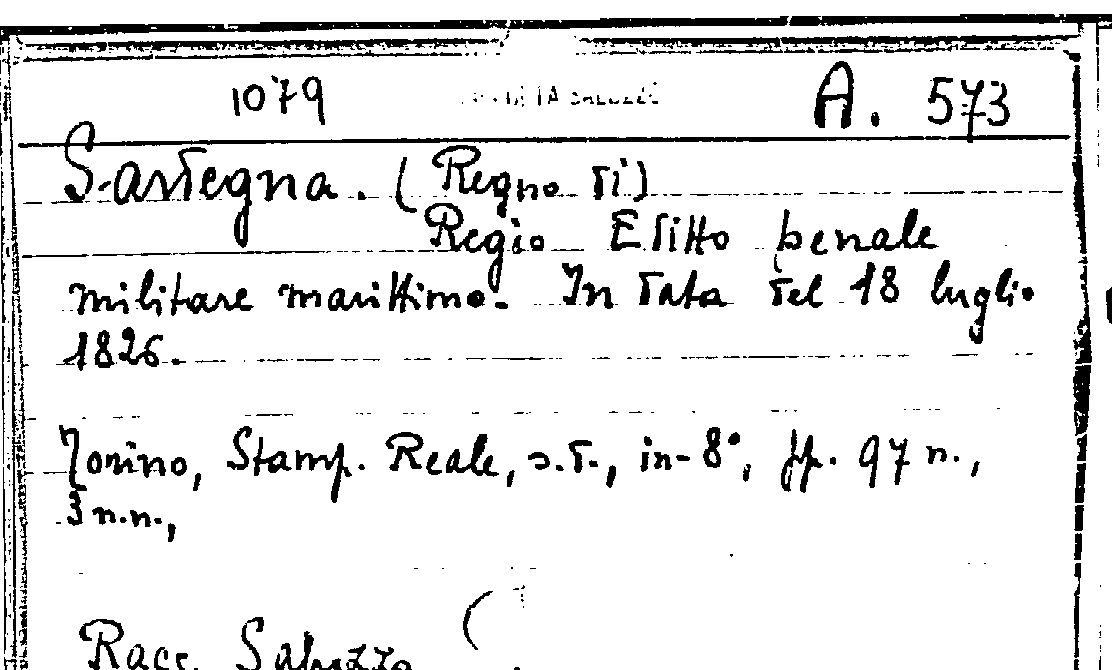 1079 A. 573
Sardegna. (Regno di)
Regio Editto penale
militare marittimo. In data del 18 luglio
1826.
Torino, Stamp. Reale, s.d., in-8°, pp. 97 n.,
3 n.n.,
Racc. Saluzzo